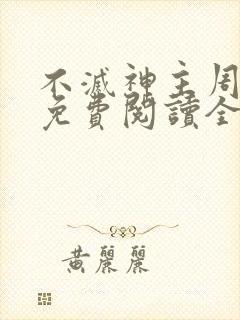 不滅神主周
免費閱讀全
黃麗麗